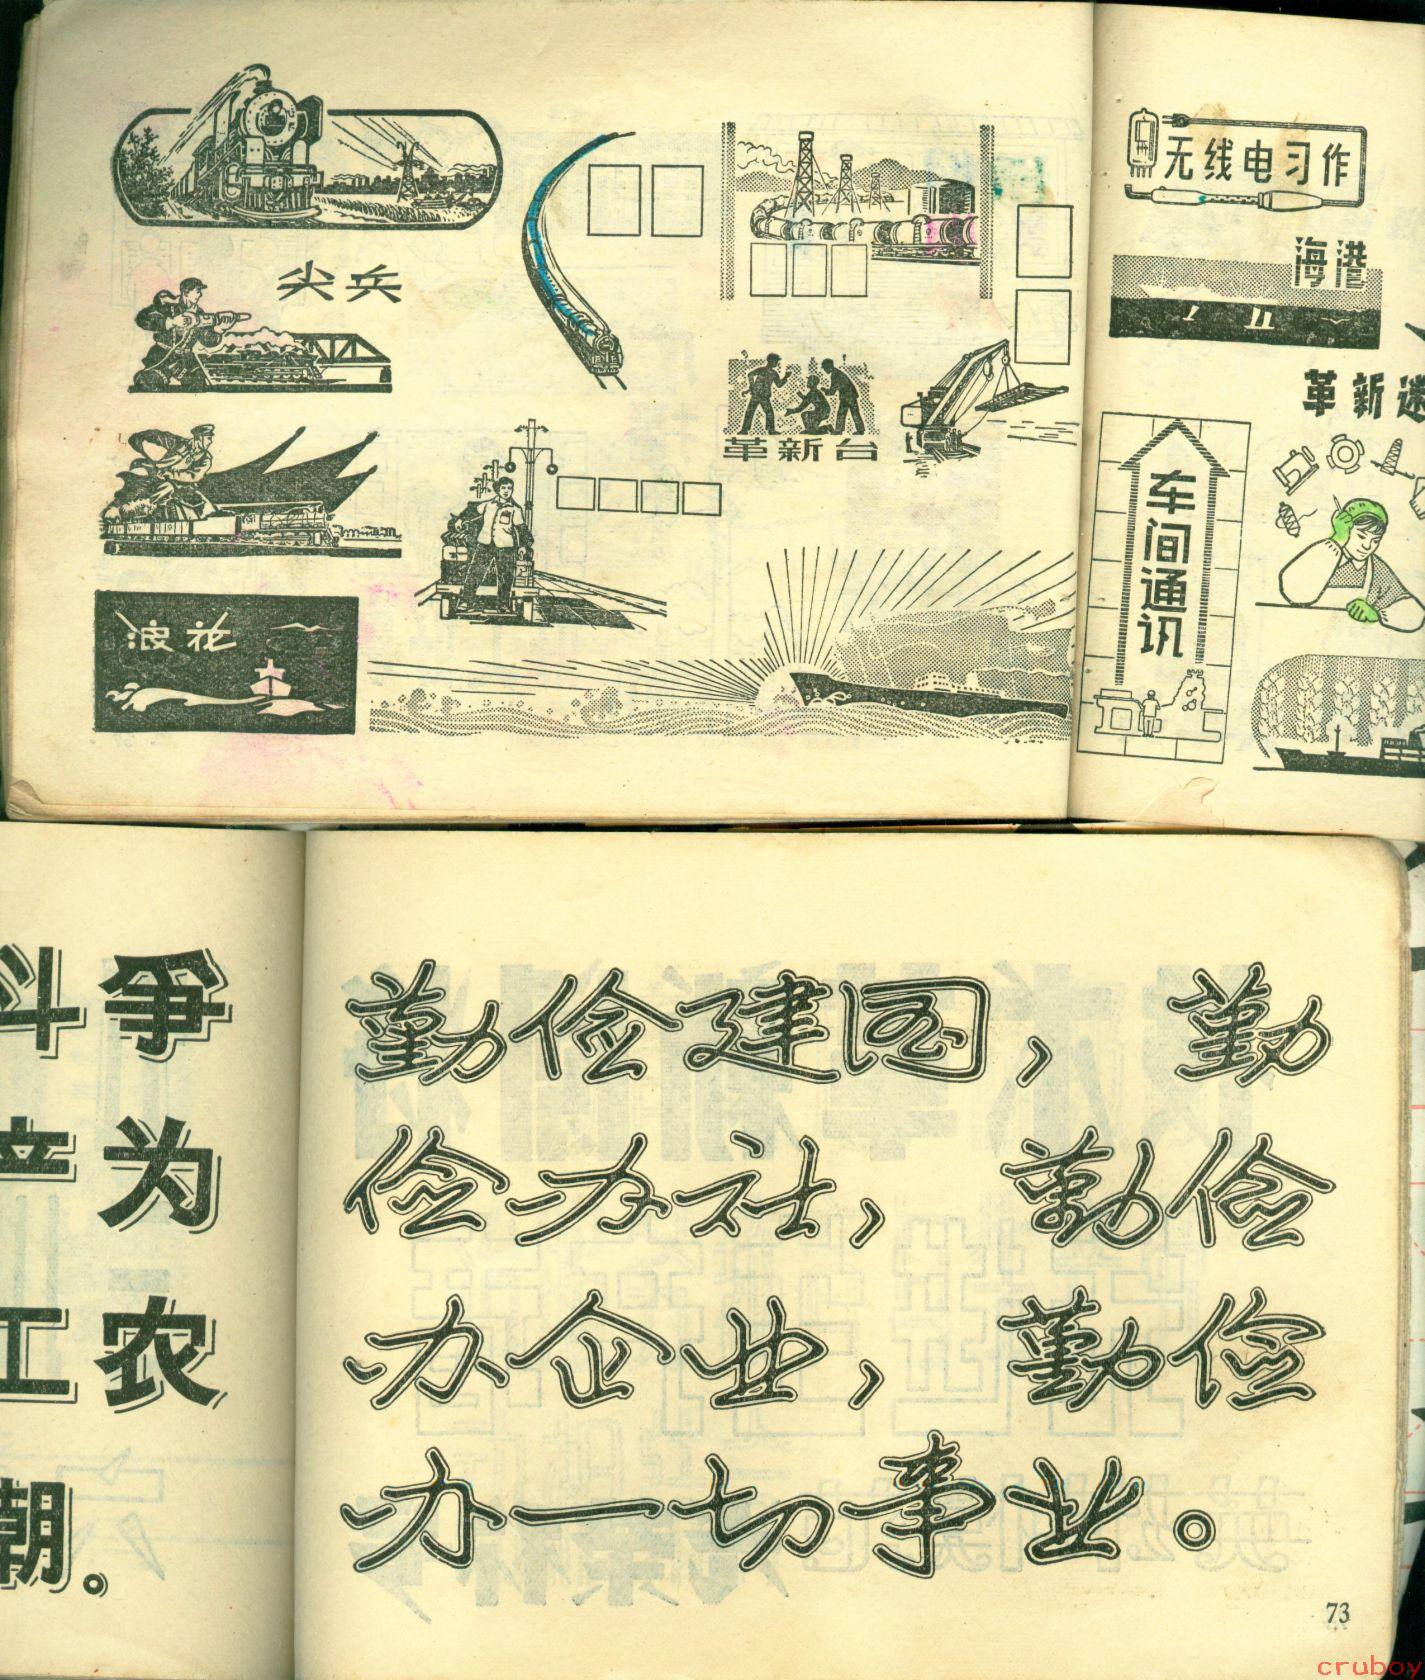 尖兵
革新台
浪花
无线电习作
海港
革新迷
车间通讯
斗争
产为
工农
潮。
勤俭建国，勤
俭办社，勤俭
办企业，勤俭
办一切事业。
73
cruboy